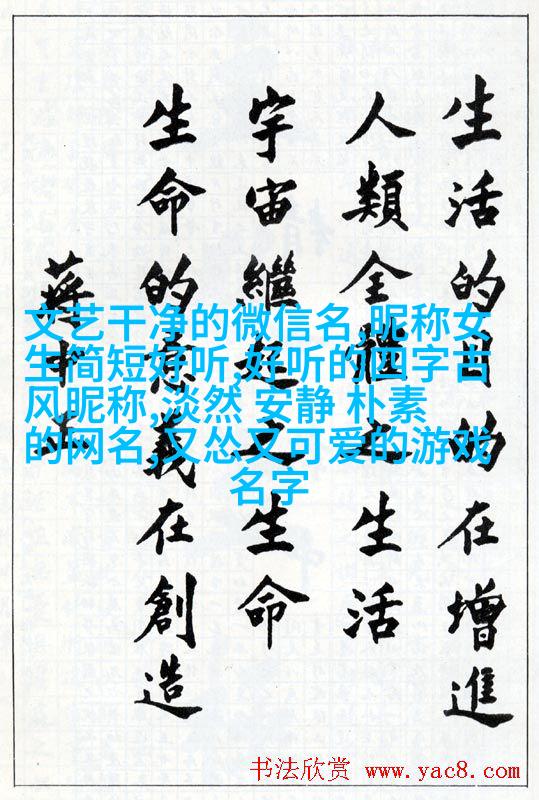 生活的目的在增進
人類全體之生活
宇宙繼起之生命
生命的意義在創造
蔣中正
文艺干净的微信名,昵称女
生简短好听,好听的四字古
风昵称,淡然 安静 朴素
的网名,又怂又可爱的游戏
名字
书法欣赏 www.yac8.com